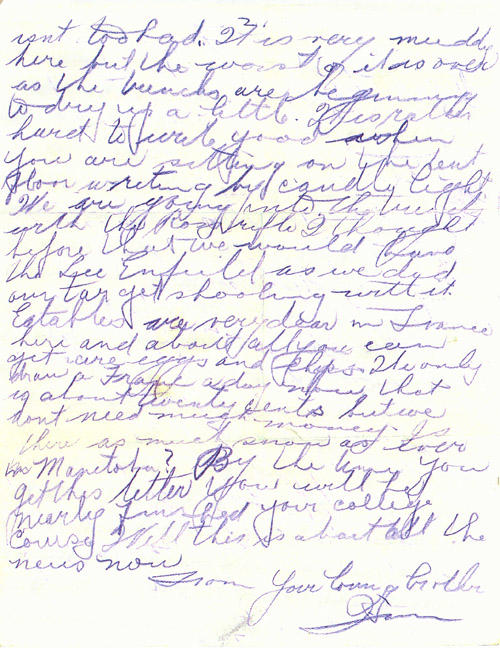 isnt too bad. It is very muddy
here but the worst of it is over
as the trenches are beginning
to dry up a little. It is rather
hard to write good when
you are sitting on the tent
floor writing by candle light
We are going into the trenches
with the Ross rifle I thought
before that we would have
the Lee Enfield as we did
our target shooling with it.
Eatables are very dear in France
here and about all you can
get are eggs and chips. We only
draw a Franc a day now that
is about twenty cents but we
dont need much money. Is
there as much snow as ever
in Manitoba? By the time you
get this letter you will be
nearly finished your college
Course Well this is about all the
news now
From Your loving brother